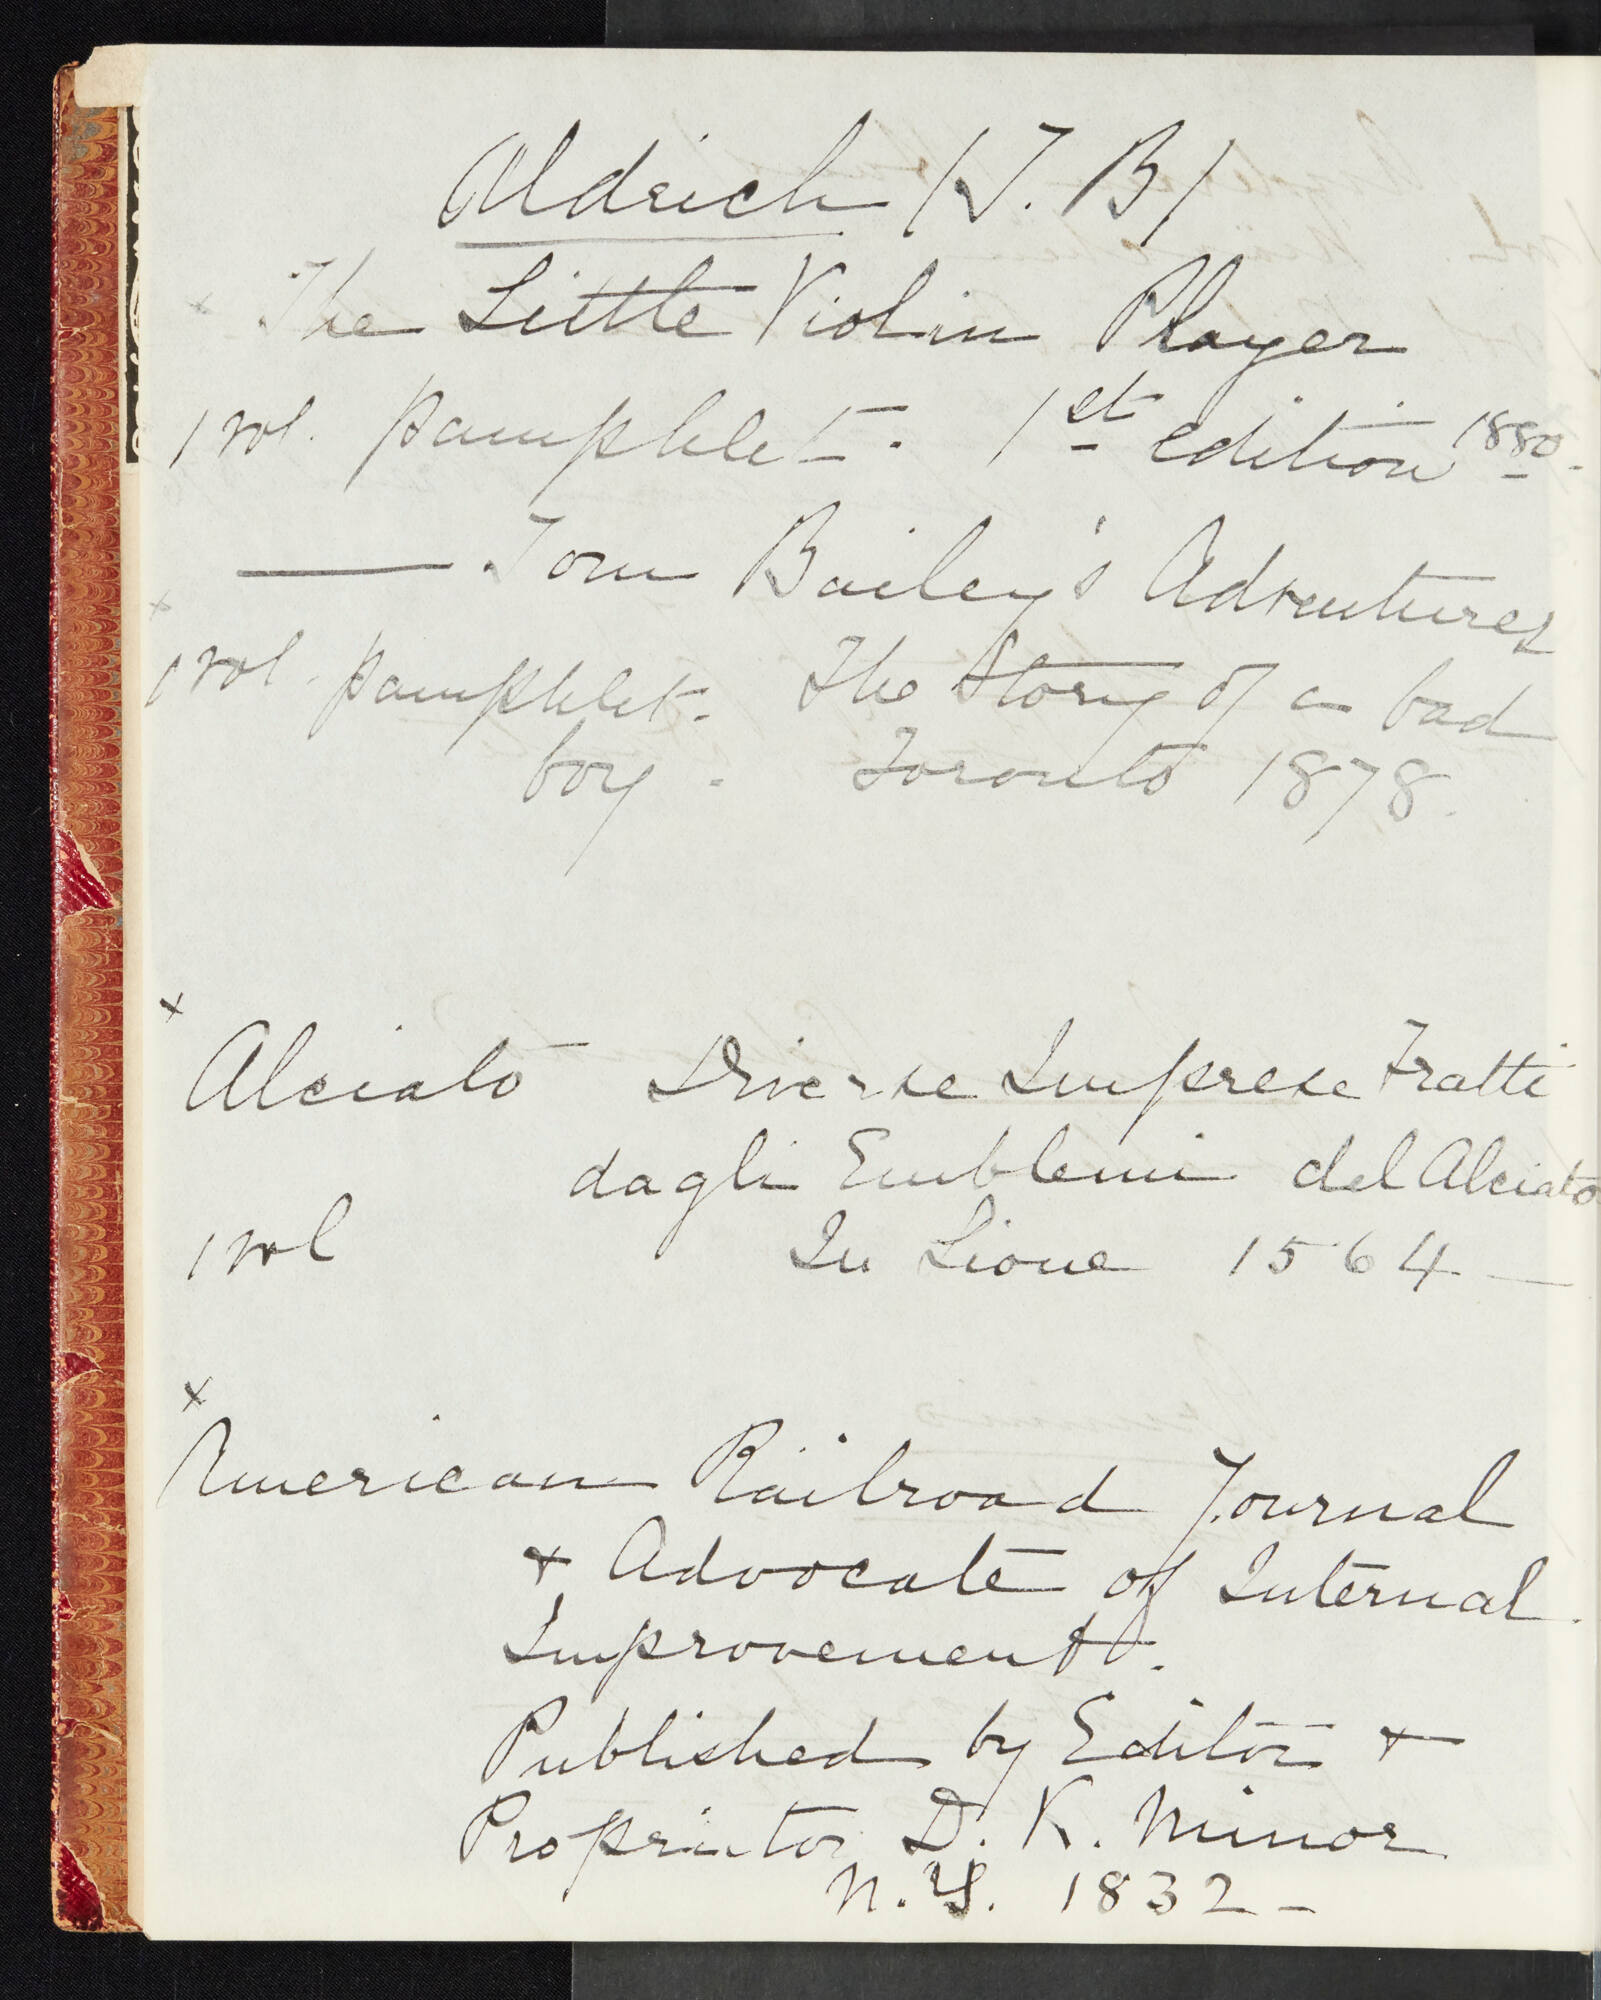 Aldrich (T. B)
x The Little Violin Player
1 vol. pamphlet. 1st edition 1880.
— Tom Bailey's Adventures
x
1 vol. pamphlet. The Story of a bad
boy. Toronto 1878.
x
Alciato Diverse Imprese Tratti
dagli Emblemi del Alciato
1 vol In Lione 1564 —
x
American Railroad Journal
+ Advocate of Internal
Improvement.
Published by Editor +
Proprietor D. K. Minor
N. Y. 1832 –